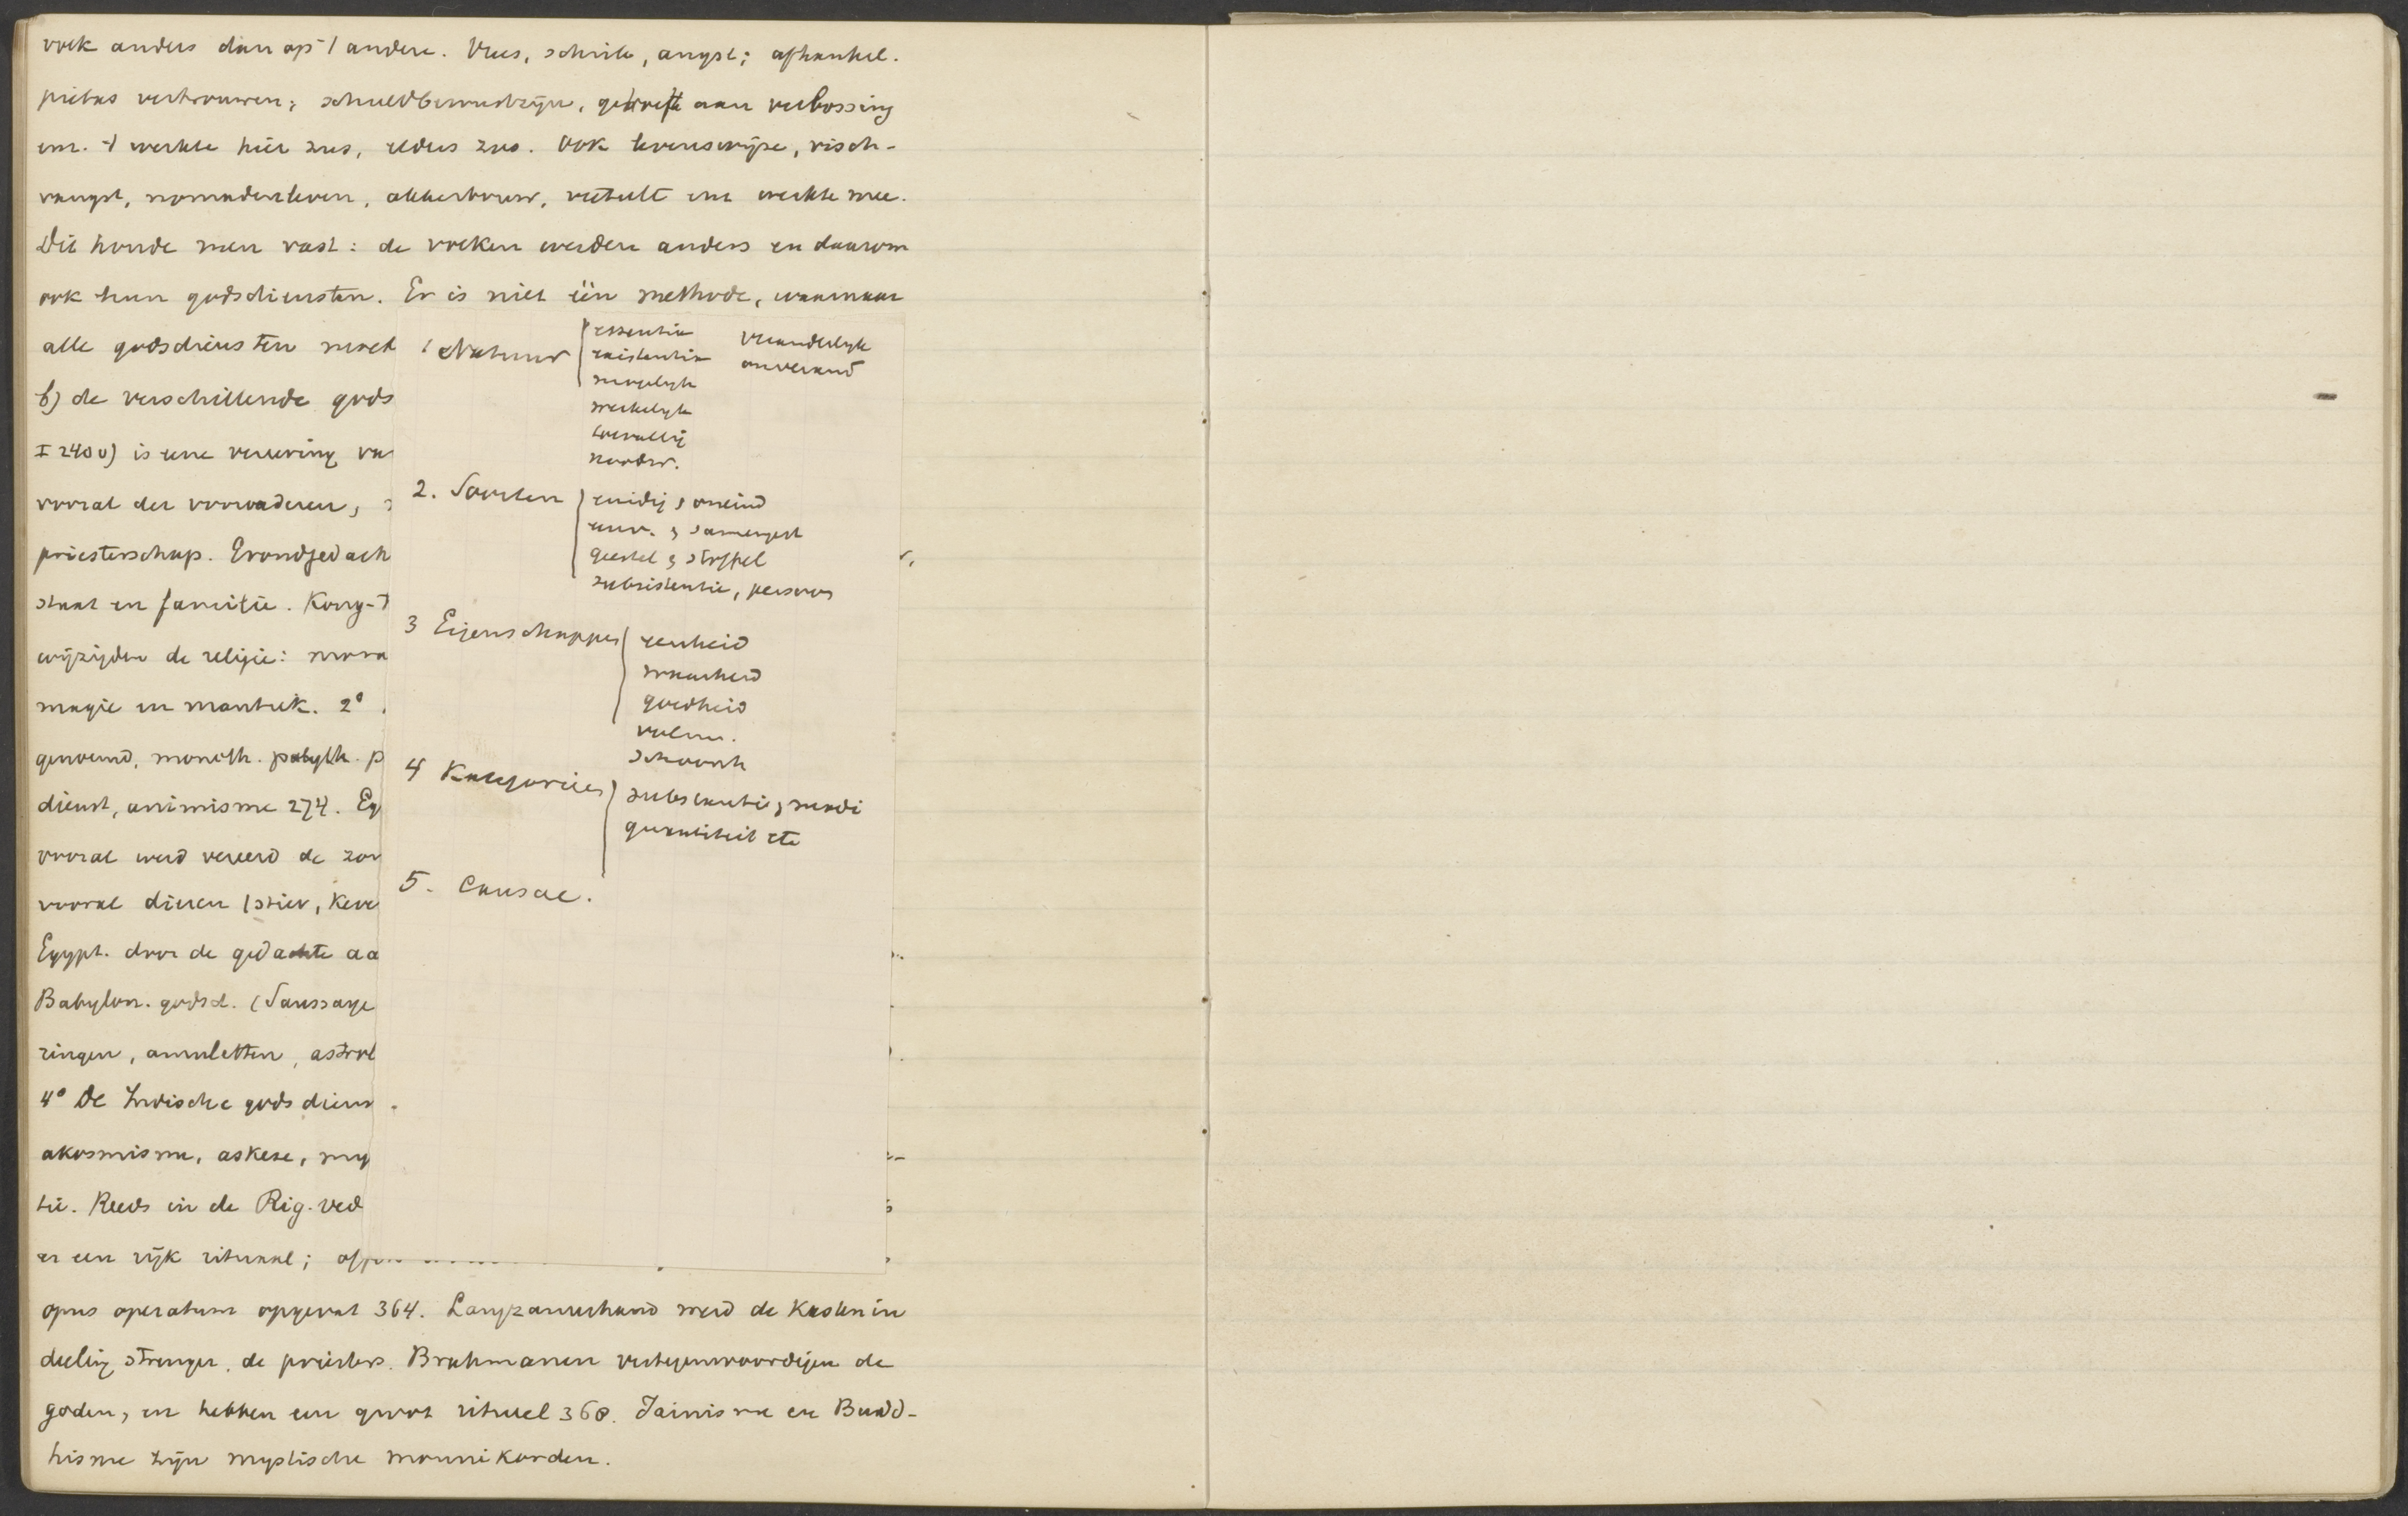 volk anders dan op 't andere. Vrees, schrik, angst; afhankel.
piëtas vertrouwen; schuldbewustzijn, behoefte aan verlossing
enz. 't werkte hier zus, elders zoo. Ook levenswijze, visch-
vangst, nomadenleven, akkerbouw, veeteelt enz werkte mee.
Dit houde men vast: de volken werden anders en daarom
ook hun godsdiensten. Er is niet één methode, waarnaar
alle godsdiensten
b) de verschillende gods
I 240 v) is eene vereering va
vooral der voorvaderen,
priesterschap. Grondgedach
staat en familie. Kong-
wijzigden de religie: mora
magie en mantiek. 2°
genoemd, monoth. polyth. p
dienst, animisme 274. Eg
vooral werd vereerd de zon
vooral dieren (stier, keve
Egypt. door de gedachte aa
Babylon. godsd. (Saussaye
ringen, amuletten, astrol
4° De Indische godsdiens
akosmisme, askese, my
tie. Reeds in de Rig-ved
er een rijk rituaal;
opus operatum opgevat 364. Langzamerhand werd de kastenin
deeling strenger, de priesters. Brahmanen vertegenwoordigen de
goden, en hebben een groot ritueel 368. Jainisme en Budd-
hisme zijn mystische monnikorden.
1 Natuur
essentia
existentia
mogelijk
werkelijk
toevallig
noodw.
veranderlijk
onverand
2. Soorten
eindig & oneind
eenv. & samengest
geestel & stoffel
subsistentie, persoon
3 Eigenschappen
eenheid
waarheid
goedheid
volm.
schoonh
4 Kategorieën
substantie & modi
quantiteit etc
5. Causae.